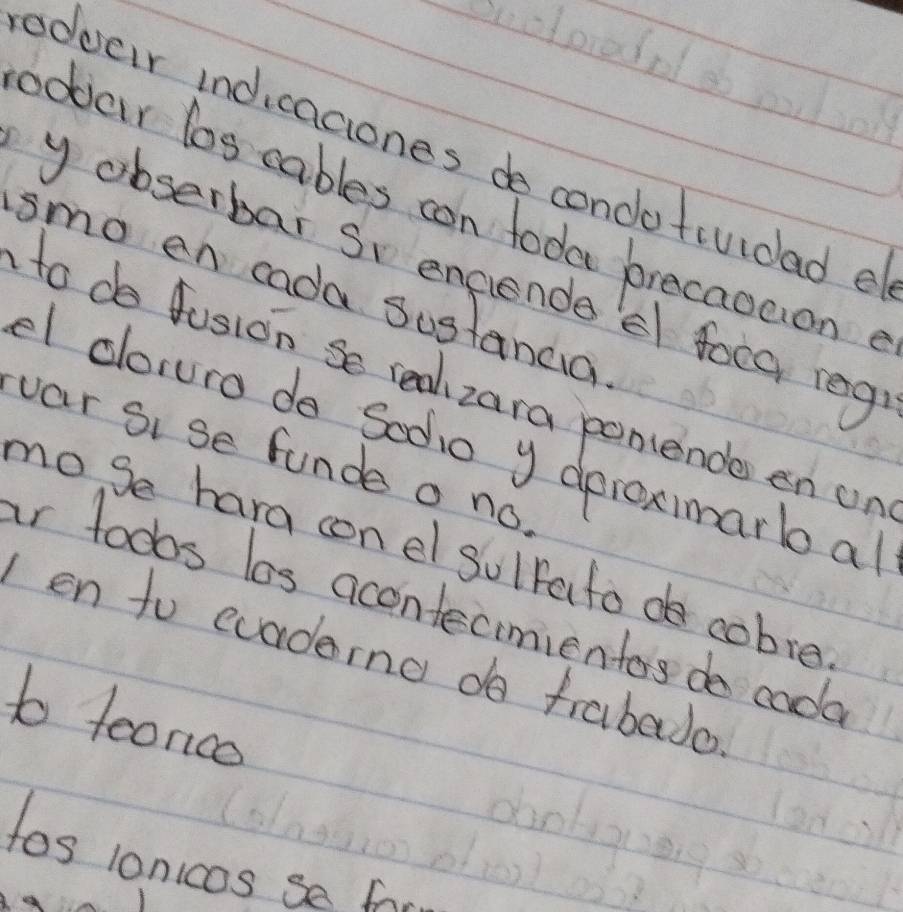 roducir indicaciones de condutividad ele
roducir los cables con toda precaocion e
y obserbar si enciende el foco regis
ismo en cada sustancia.
nto de fusión se realizara poniendo en una
el cloruro de Sodio y aproximarlo al
rvar si se funde o no.
mo se hara con el sulfato de cobre.
ar todos los acontecimientos de cada
l en tu cuaderno de trabajo.
to teorico
tos ionicos se for